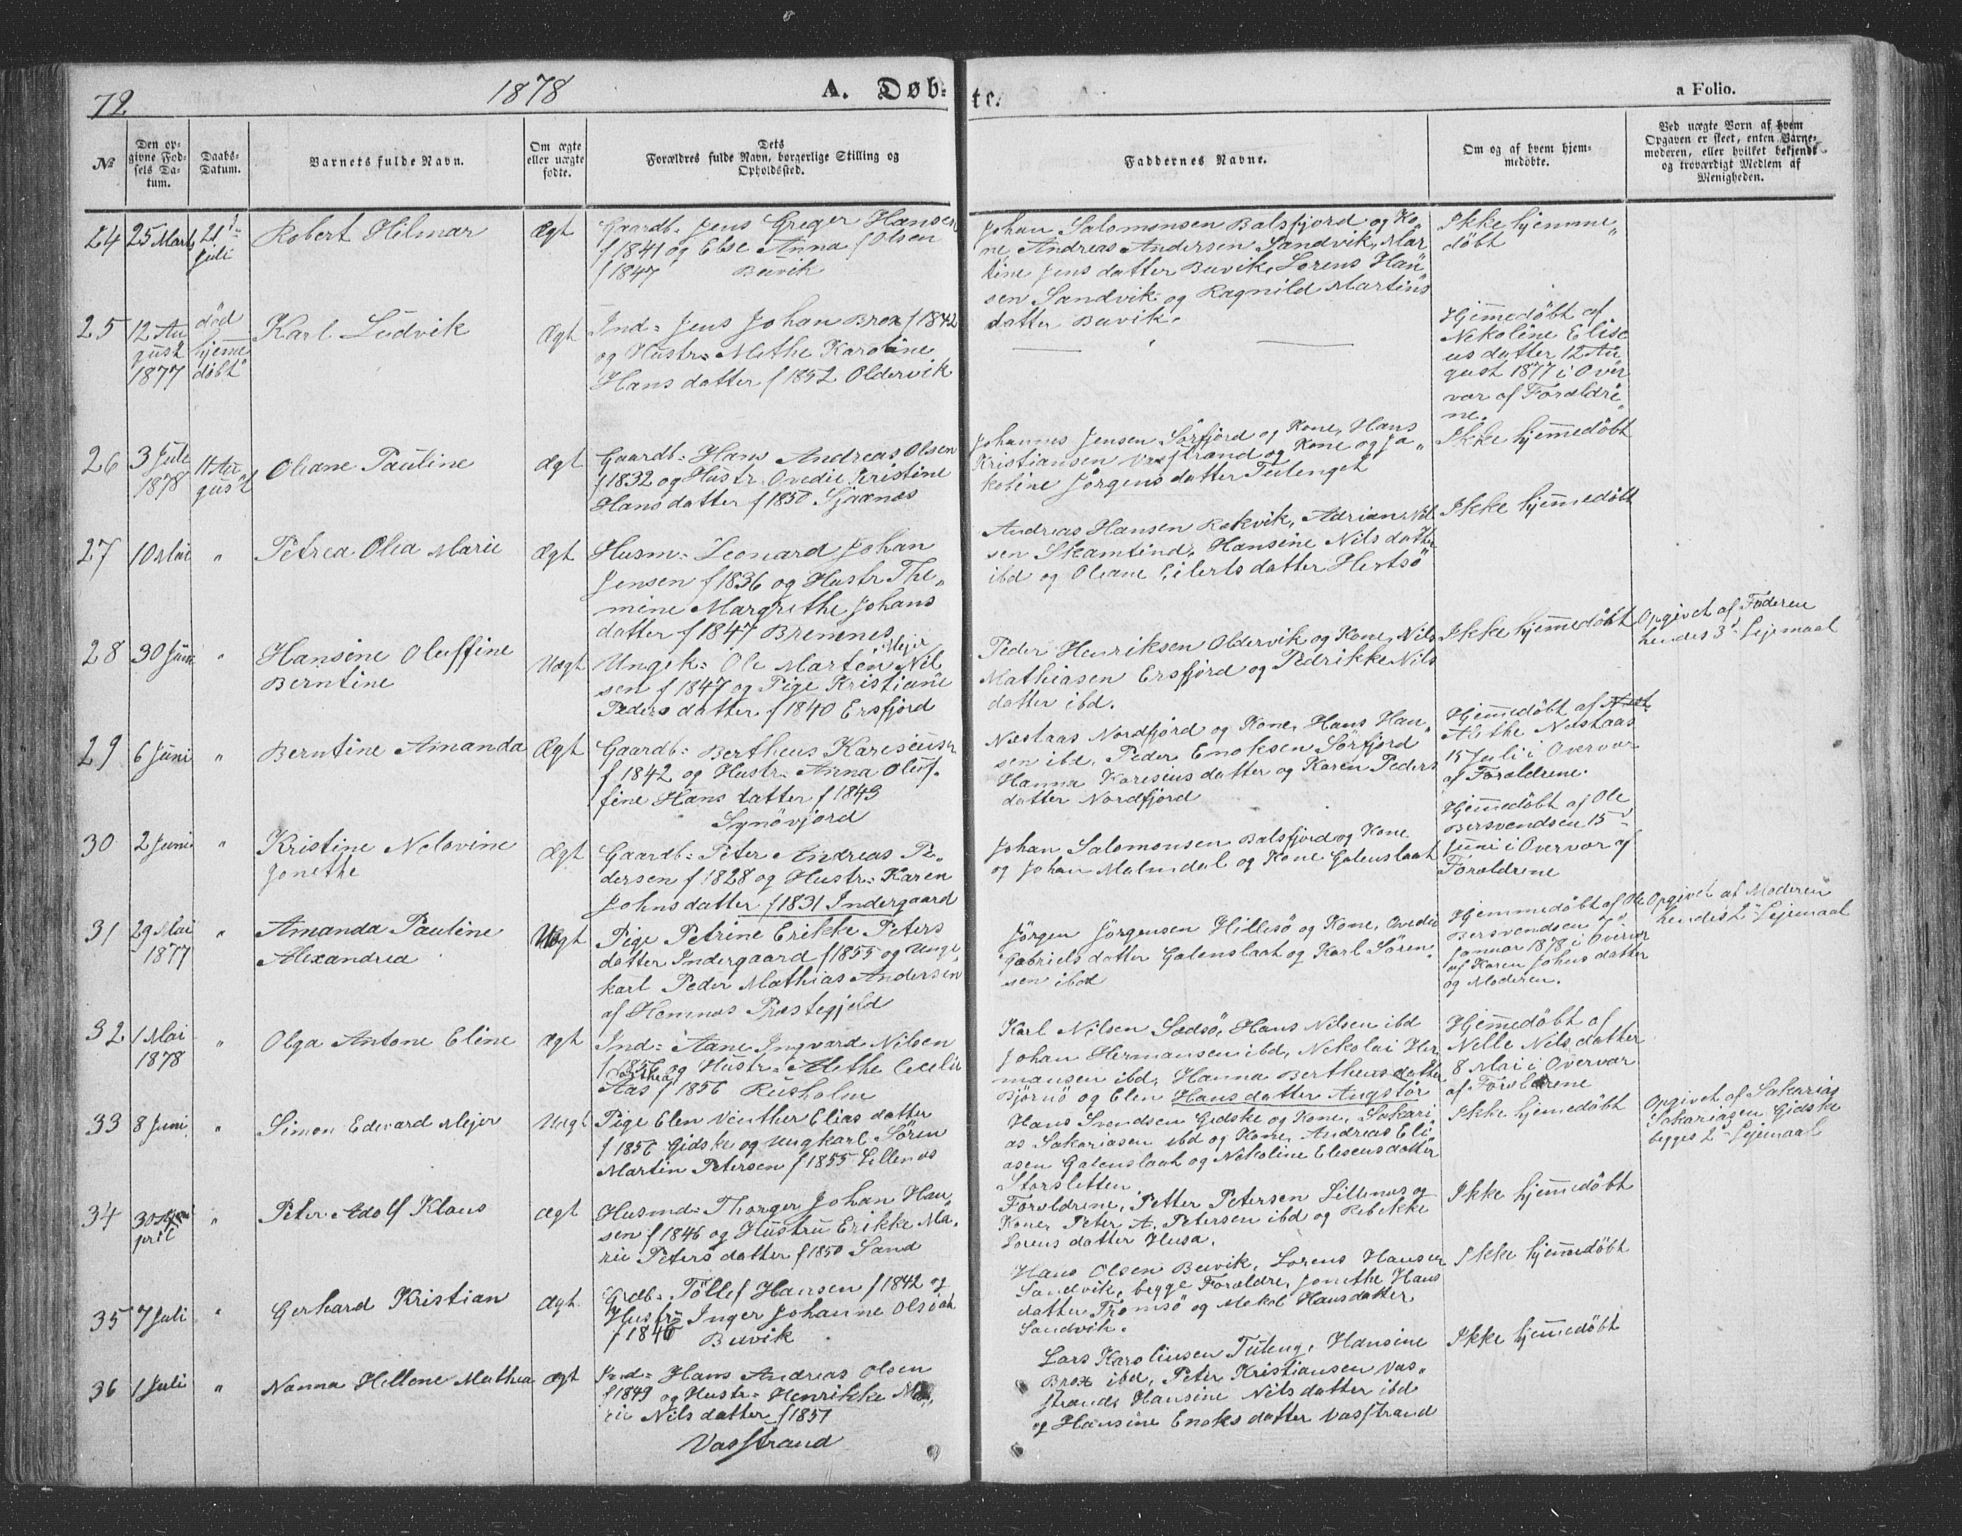 72
1878
A. Døb-
te.
a Folio.
№
Den op-
givne Fød-
sels Da-
tum.
Daabs-
Datum.
Barnets fulde Navn.
Om ægte
eller uægte
fødte.
Dets
Forældres fulde Navn, borgerlige Stilling og
Opholdssted.
Faddernes Navne.
Om og af hvem hjem-
medøbte.
Ved uægte Børn af hvem
Opgaven er skeet, enten Barne-
moderen, eller hvilket bekjendt
og troværdigt Medlem af
Menigheden.
24
25 Marts
21
Juli
Robert Hilmar
Ægt
Gaardb. Jens Greger Hansen
f 1841 og Else Anna Olsen
f 1847 Buvik
Johan Salomonsen Balsfjord og Ko
ne, Andreas Andersen Sandvik, Mar
tine Jensdatter Buvik, Lorens Han
sen Sandvik og Ragnild Martins
datter Buvik.
Ikke hjemme
døbt
25
12 Au
gust
1877
død
hjemme
døbt
Karl Ludvik
Ægt
Ind= Jens Johan Brox f 1842
og Hustr= Methe Karoline
Hansdatter f 1852 Oldervik
Hjemmedøbt af
Nekoline Elise
usdatter 12 Au
gust 1877 i Over
vær af Foreldre
ne.
26
3 Juli
1878
11 Au
gust
Oliane Pauline
Ægt
Gaardb= Hans Andreas Olsen
f 1832 og Hustr. Ovedie Kristine
Hansdatter f 1850 Sjaanæs
Johannes Jensen Sørfjord og Kone, Hans
Kristiansen Vasstrand og Kone og Ja
kobine Jørgensdatter Tulenget
Ikke hjemmedøbt
27
10 Mai
"
Petrea Olea Marie
Ægt
Husm= Leonard Johan
Jensen f 1836 og Hustr The
mine Margrethe Johans
datter f 1847 Bremnes
Andreas Hansen Rekvik, Adrian Nil
sen Skamtind, Hansine Nilsdatter
ibd og Oliane Eilertsdatter Hertsö
Ikke hjemmedøbt
28
30 Juni
"
Hansine Oluffine
Berntine
Uægt
Ungk= Ole Marten Mejer Nil
sen f 1847 og Pige Kristiane
Pedersdatter f 1840 Ersfjord
Peder Henriksen Oldervik og Kone, Nils
Mathiasen Ersfjord og Pedrikke Nils
datter ibd.
Ikke hjemmedøbt
Opgivet af Faderen
hendes 3d Lejemaal
29
6 Juni
"
Berntine Amanda
Ægt
Gaardb= Bertheus Kariseusen
f 1842 og Hustr= Anna Oluf
fine Hansdatter f 1843
Næstaas Nordfjord og Kone, Hans Han
sen ibd, Peder Enoksen Sørfjord
Hanna Karesiusdatter og Karen Peders
datter Nordfjord
Hjemmedøbt af
Alethe Næstaas
15 Juli i Overvær
af Foreldrene.
30
2 Juni
"
Kristine Nelovine
Jonethe
Ægt
Gaardb= Peter Andreas Pe
dersen f 1828 og Hustr= Karen
Johnsdatter f 1831 Indergaard
Johan Salomonsen Balsfjord og Kone
og Johan Malmdal og Kone Galenslaat
Hjemmedøbt af Ole
Bersvendsen 15
Juni i Overvær af
Foreldrene
31
29 Mai
1877
"
Amanda Pauline
Alexandrea
Uægt
Pige Petrine Erikke Peters
datter Indergaard f 1855 og Ung
karl Peder Mathias Andersen
af Hemnæs Præstegjeld
Jørgen Jørgensen Hillesø og Kone, Ovedie
Gabrielsdatter Galenslaat og Karl Søren
sen ibd
Hjemmedøbt af Ole
Bersvendsen
Januar 1878 i Overvær
af Karen Johnsdatter
og Moderen.
Opgivet af Moderen
hendes 2 Lejemaal
32
1 Mai
1878
"
Olga Antone Eline
Ægt
Ind= Aane Ingvard Nilsen
f 1856 og Hustr= Alethe Cecilie
Dorthea
Aas f 1856 Rusholm
Karl Nilsen Sandsø, Hans Nilsen ibd
Johan Hermansen ibd, Nekolai Her
mansen ibd, Hanna Bertheusdatter
Bjørnø og Elen Hansdatter Angstör
Hjemmedøbt af
Nelle Nilsdatter
8 Mai i Overvær
af Foreldrene
33
8 Juni
"
Simon Edvard Mejer
Uægt
Pige Elen Venther Eliasdatter
f 1856 Gidske og Ungkarl Søren
Martin Petersen f 1855 Lillenæs
Hans Svendsen Gidske og Kone, Sakari
as Sakariasen ibd og Kone, Andreas Eli
asen Galenslaat og Nekoline Eliseusdatter
Storsletten
Ikke hjemmedøbt
Opgivet af Sakarias
Sakariasen Gidske
begges 2 Lejemaal
34
30 A
pril
"
Peter Adolf Klaus
Ægt
Husmd= Thorger Johan Han
sen f 1846 og Hustru Erikke Ma
rie Petersdatter f 1850 Sand
Foreldrene, Petter Petersen Lillenæs og
Kone, Peter A. Petersen ibd og Rebekke
Lorensdatter Husa.
Ikke hjemmedøbt
35
7 Juli
"
Gerhard Kristian
Ægt
Grdb= Töllef Hansen f 1842 og
Huströ Inger Johanne Olsdat
f 1846 Buvik
Hans Olsen Buvik, Lorens Hansen
Sandvik, begge Foreldre, Jonethe Hans
datter Tromsö og Mekal Hansdatter
Sandvik.
Ikke hjemmedøbt
36
1 Juli
"
Nanna Hellene Mathea
Ægt
Ind= Hans Andreas Olsen
f 1849 og Hustr= Henrikke Ma
rie Nilsdatter f 1851
Vasstrand
Lars Karolinsen Tuleng, Hansine
Brox ibd, Peter Kristiansen Vas
strand, Hansine Nilsdatter ibd
og Hansine Enoksdatter Vasstrand
Ikke hjemmedøbt